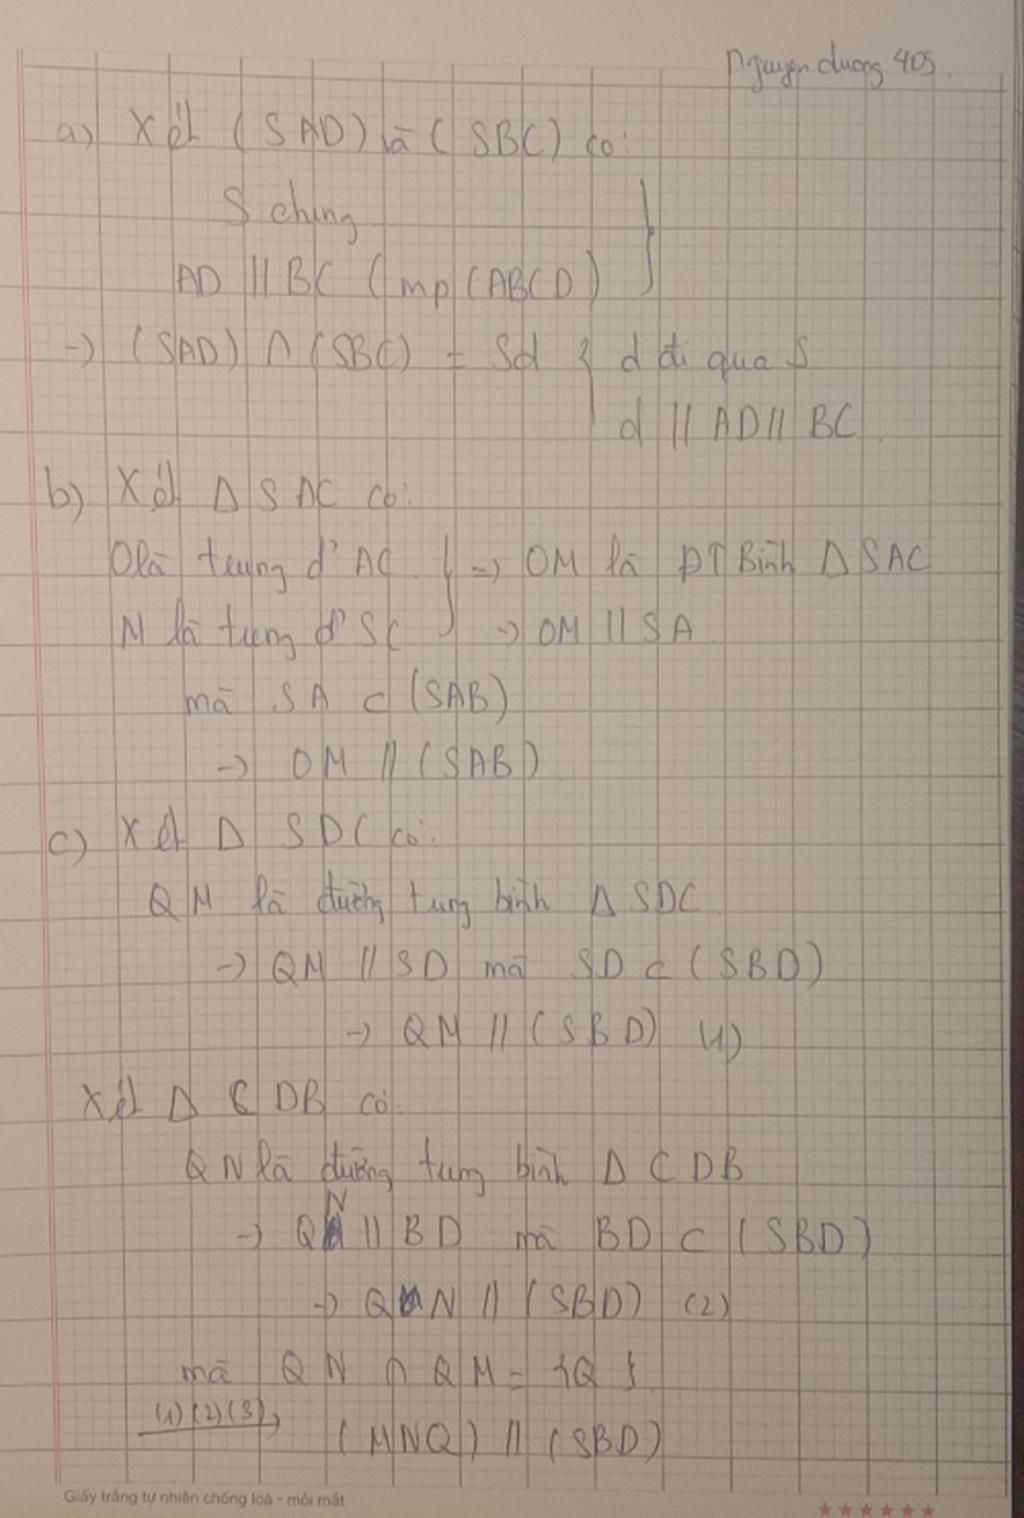 Nguyen duong 405
a) Xét (SAD) và (SBC) có:
S chung
AD // BC (mp(ABCD)
→ (SAD) ∩ (SBC) = Sd { d đi qua S
d // AD // BC
b) Xét Δ SAC có:
O là trung đ' AC } → OM là ĐT Bình Δ SAC
M là trung đ' SC → OM // SA
mà SA ⊂ (SAB)
→ OM // (SAB)
c) Xét Δ SDC có:
QM là đường trung bình Δ SDC
→ QM // SD mà SD ⊂ (SBD)
→ QM // (SBD) (1)
Xét Δ CDB có
QN là đường trung bình Δ CDB
→ QN // BD mà BD ⊂ (SBD)
→ QN // (SBD) (2)
mà QN ∩ QM = {Q}
(1)(2)(3)→ (MNQ) // (SBD)
Giấy trắng tự nhiên chống loá - mỏi mắt